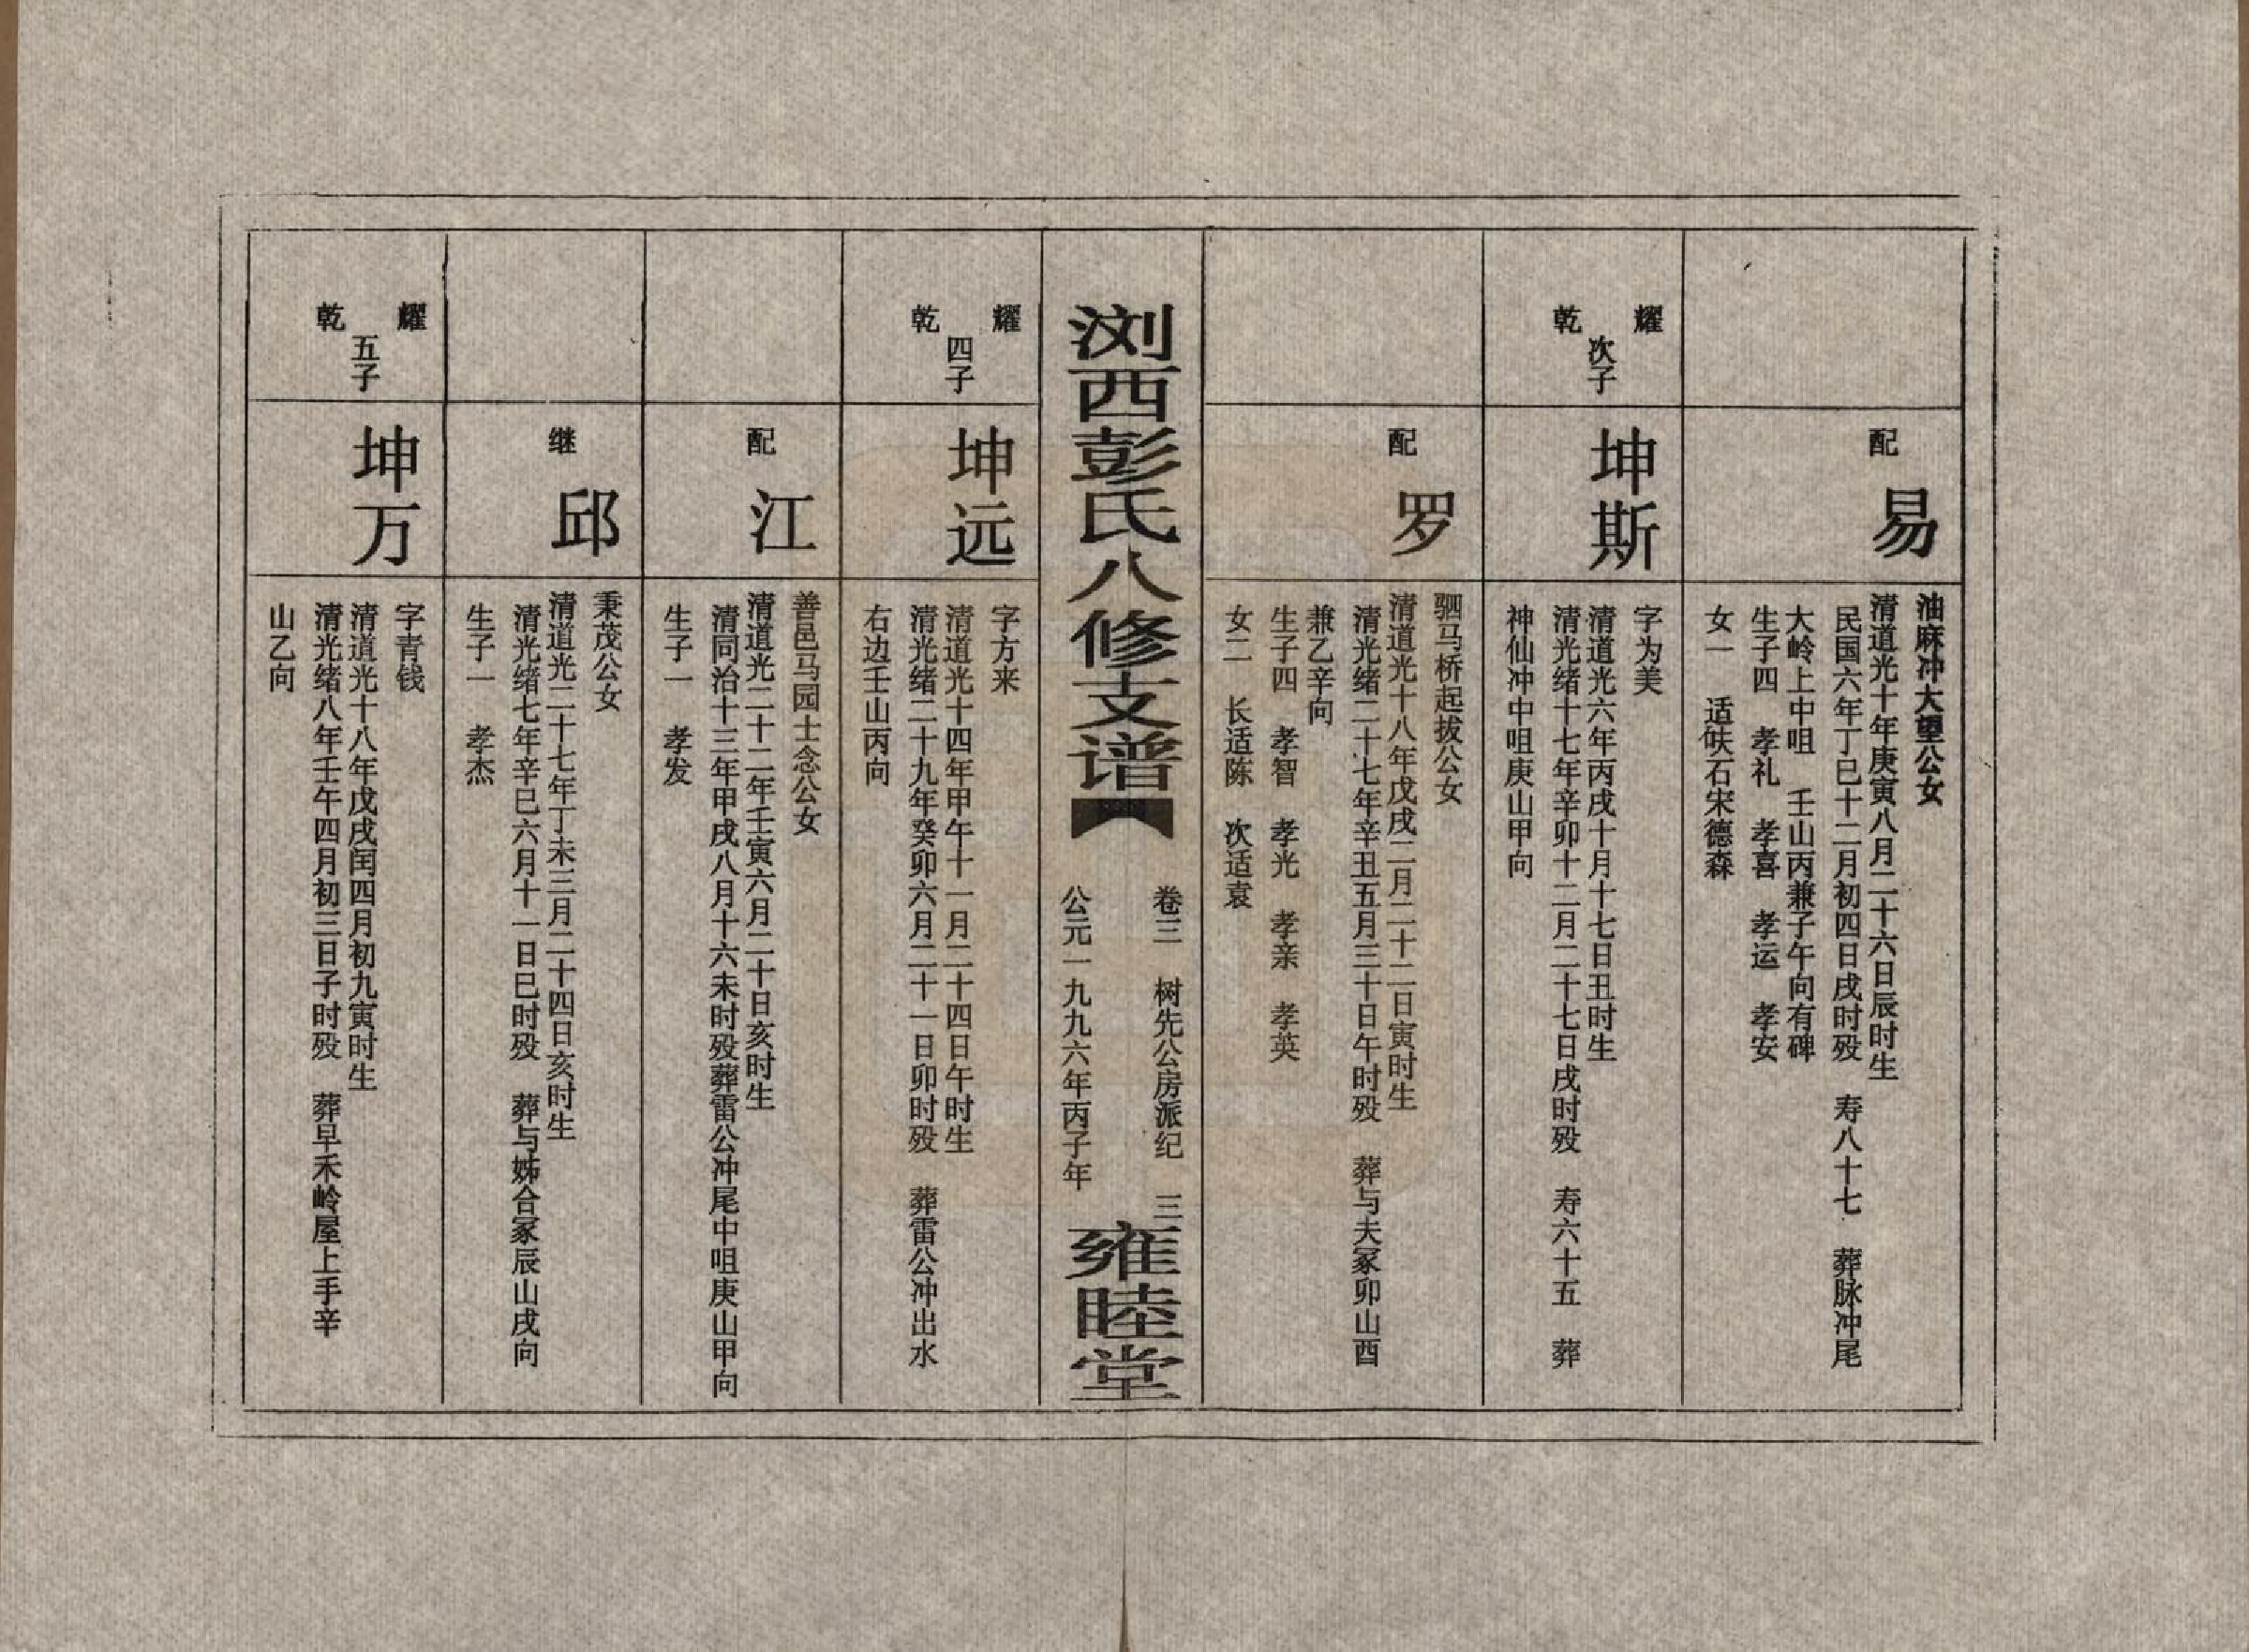 配
易
油麻冲大望公女
清道光十年庚寅八月二十六日辰时生
民国六年丁巳十二月初四日戌时殁 寿八十七 葬脉冲尾
大岭上中咀 壬山丙兼子午向有碑
生子四 孝礼 孝喜 孝运 孝安
女一 适砆石宋德森
耀乾
次子
坤斯
字为美
清道光六年丙戌十月十七日丑时生
清光绪十七年辛卯十二月二十七日戌时殁 寿六十五 葬
神仙冲中咀庚山甲向
配
罗
驷马桥起拔公女
清道光十八年戊戌二月二十二日寅时生
清光绪二十七年辛丑五月三十日午时殁 葬与夫冢卯山酉
兼乙辛向
生子四 孝智 孝光 孝亲 孝英
女二 长适陈 次适袁
浏西彭氏八修支谱
卷三 树先公房派纪 三
公元一九九六年丙子年
雍睦堂
耀乾
四子
坤远
字方来
清道光十四年甲午十一月二十四日午时生
清光绪二十九年癸卯六月二十一日卯时殁 葬雷公冲出水
右边壬山丙向
配
江
善邑马园士念公女
清道光二十二年壬寅六月二十日亥时生
清同治十三年甲戌八月十六未时殁葬雷公冲尾中咀庚山甲向
生子一 孝发
继
邱
秉茂公女
清道光二十七年丁未三月二十四日亥时生
清光绪七年辛巳六月十一日巳时殁 葬与姊合冢辰山戌向
生子一 孝杰
耀乾
五子
坤万
字青钱
清道光十八年戊戌闰四月初九寅时生
清光绪八年壬午四月初三日子时殁 葬早禾岭屋上手辛
山乙向